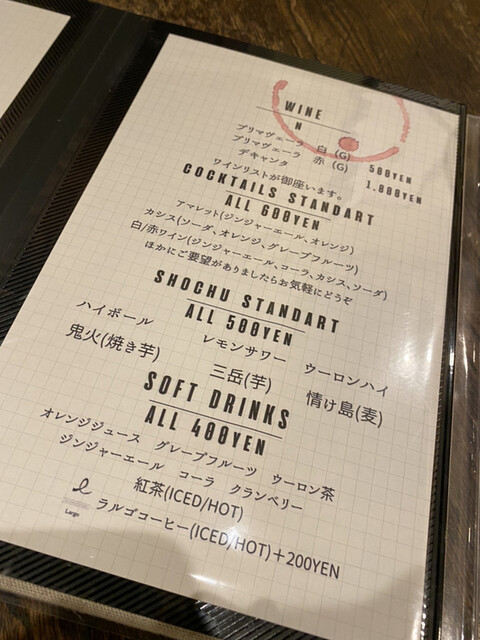 WINE
N
プリマヴェーラ 白 (G)
プリマヴェーラ 赤 (G) 500YEN
デキャンタ 1.800YEN
ワインリストが御座います。
COCKTAILS STANDART
ALL 600YEN
アマレット(ジンジャーエール、オレンジ)
カシス(ソーダ、オレンジ、グレープフルーツ)
白/赤ワイン(ジンジャーエール、コーラ、カシス、ソーダ)
ほかにご要望がありましたらお気軽にどうぞ
SHOCHU STANDART
ALL 500YEN
ハイボール レモンサワー ウーロンハイ
鬼火(焼き芋) 三岳(芋) 情け島(麦)
SOFT DRINKS
ALL 400YEN
オレンジジュース グレープフルーツ ウーロン茶
ジンジャーエール コーラ クランベリー
紅茶(ICED/HOT)
Largo ラルゴコーヒー(ICED/HOT)+200YEN